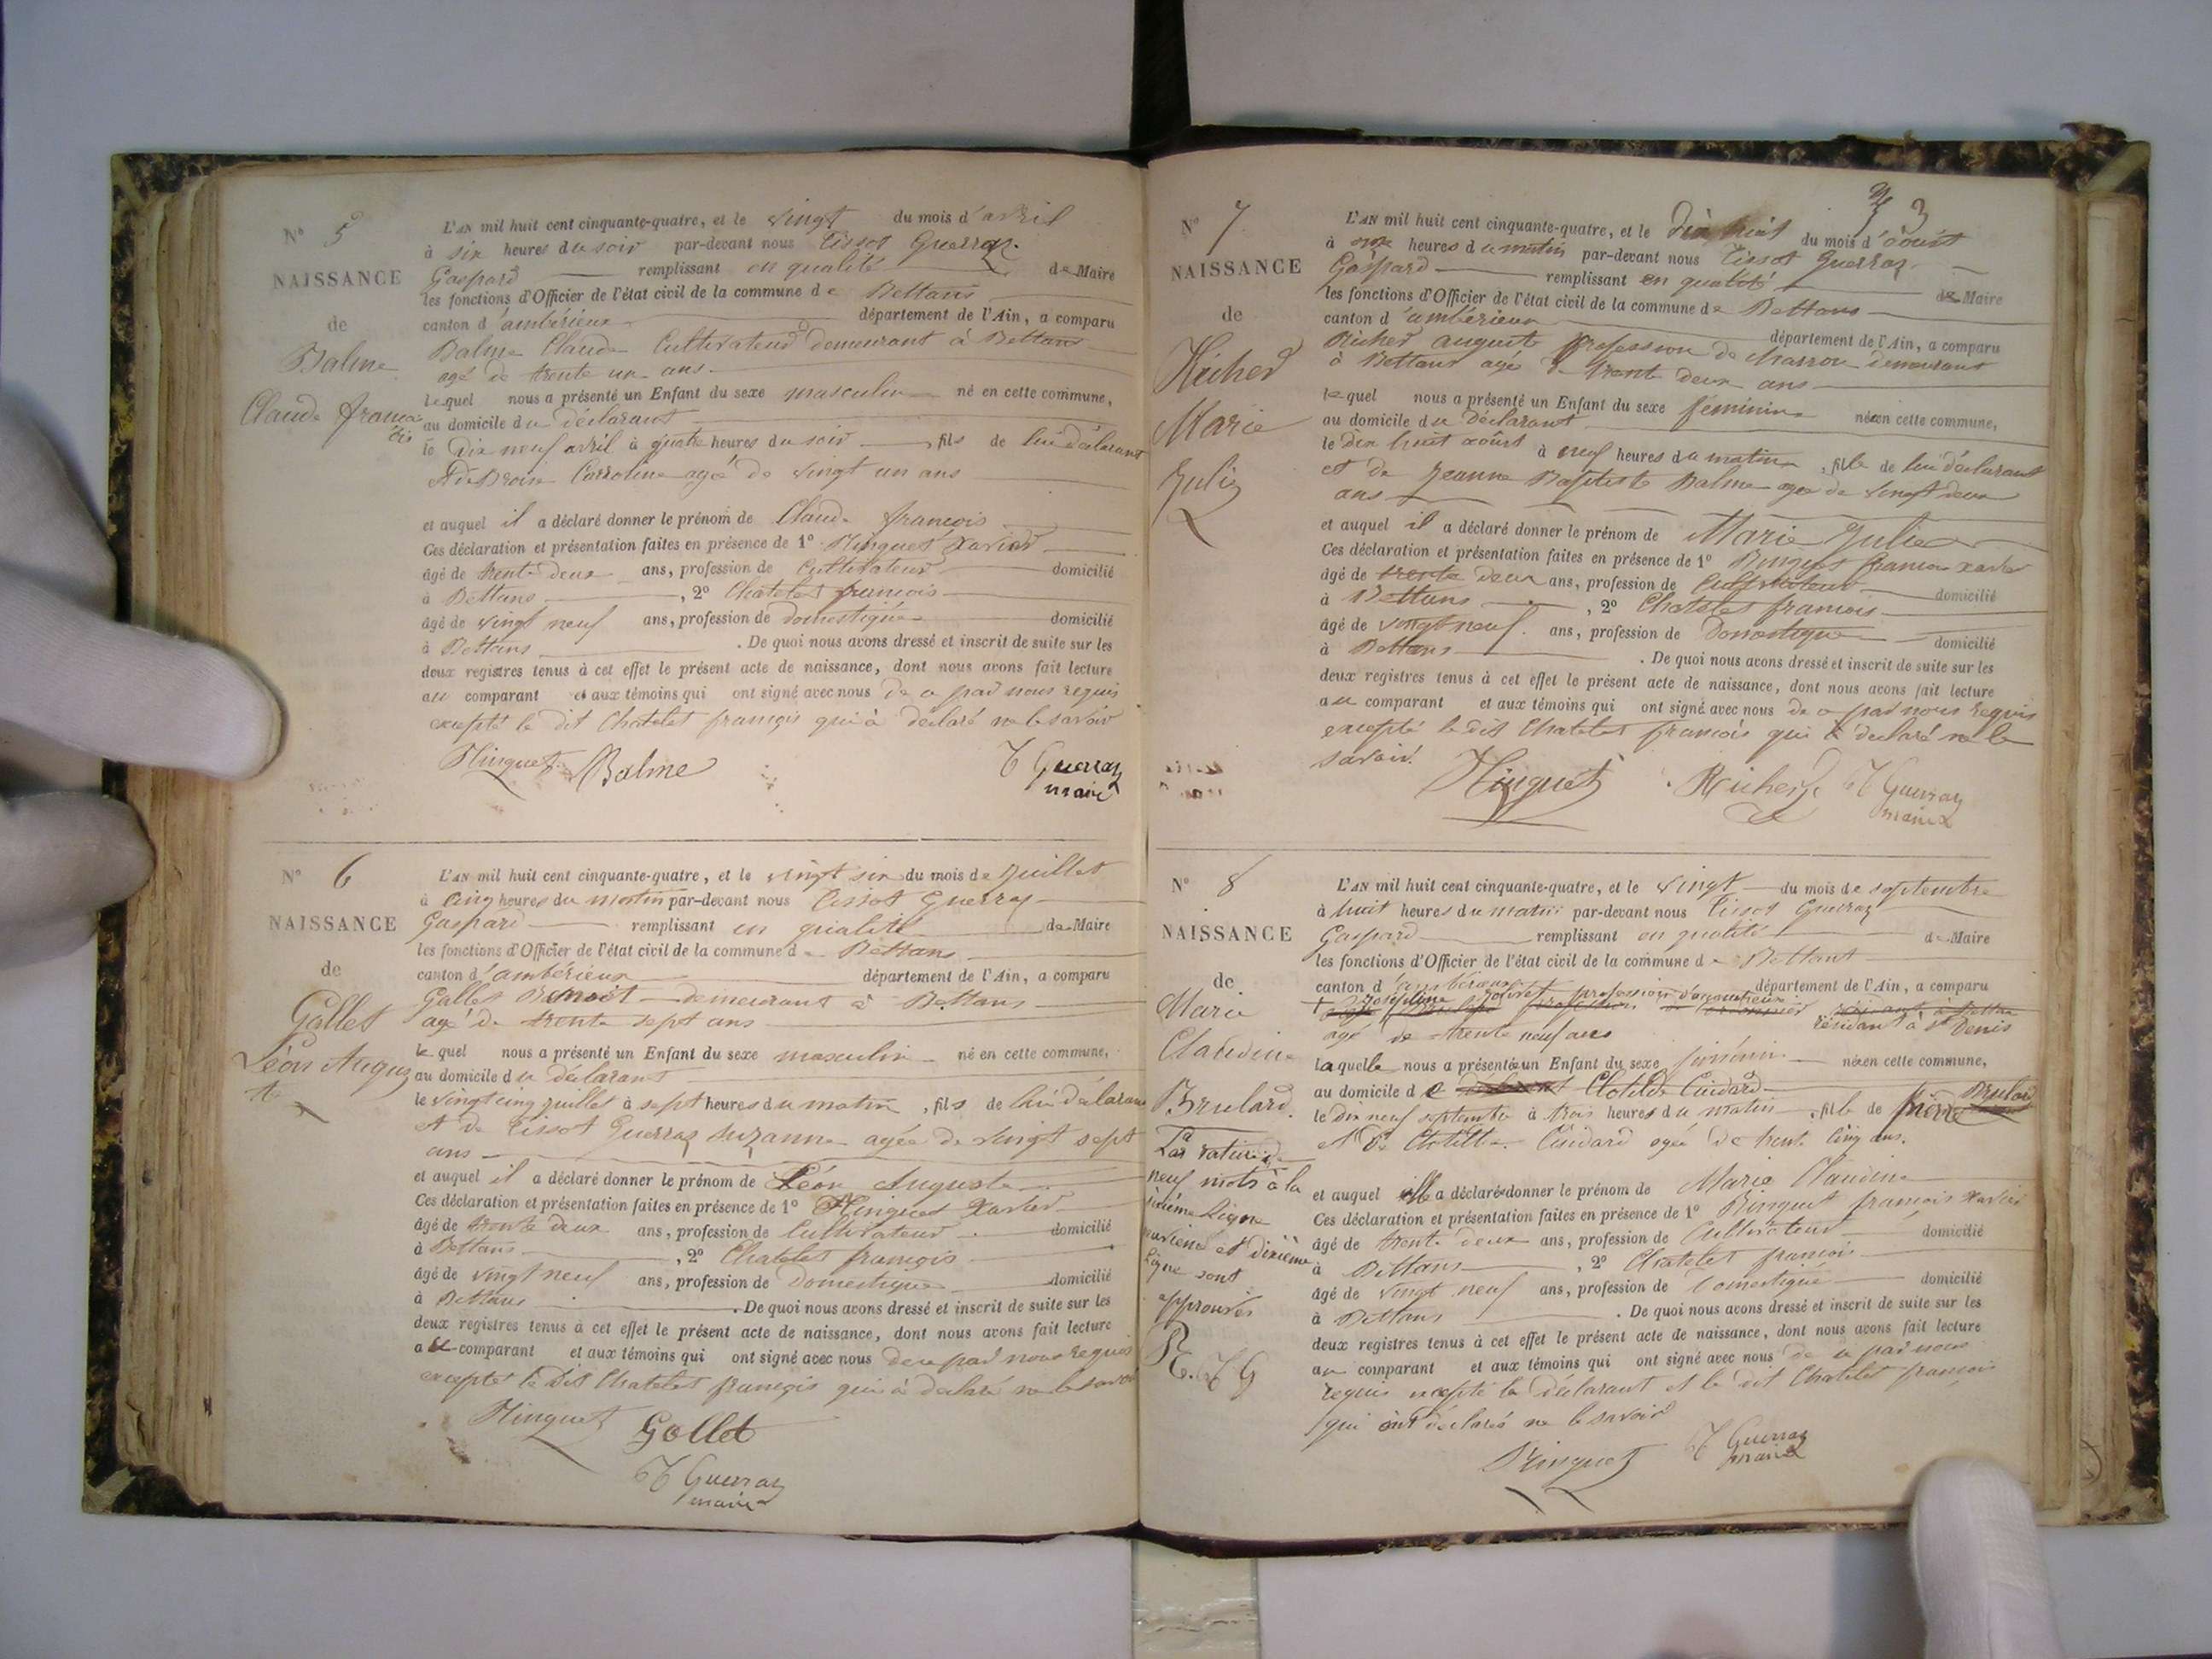 N° 5
NAISSANCE
de
Balme
Claude françois
L'AN mil huit cent cinquante-quatre, et le vingt du mois d'avril
à six heures du soir par-devant nous Tissot Guerraz
Gaspard remplissant en qualité de Maire
les fonctions d'Officier de l'état civil de la commune de Bettans
canton d'ambérieux département de l'Ain, a comparu
Balme Claude Cultivateur demeurant à Bettans
agé de trente un ans
lequel nous a présenté un Enfant du sexe masculin né en cette commune,
au domicile du déclarant
le dix neuf avril à quatre heures du soir fils de lui déclarant
et de Caroline agée de vingt un ans
et auquel il a déclaré donner le prénom de Claude françois
Ces déclaration et présentation faites en présence de 1° Ringuet Xavier
âgé de trente deux ans, profession de Cultivateur domicilié
à Bettans, 2° Chatelet francois
âgé de vingt neuf ans, profession de domestique domicilié
à Bettans. De quoi nous avons dressé et inscrit de suite sur les
deux registres tenus à cet effet le présent acte de naissance, dont nous avons fait lecture
au comparant et aux témoins qui ont signé avec nous de ce par nous requis
excepté le dit Chatelet françois qui à déclaré ne le savoir
Ringuet Balme T Guerraz
maire
N° 6
NAISSANCE
de
Gallet
Léon Auguste
L'AN mil huit cent cinquante-quatre, et le vingt six du mois de juillet
à cinq heures du matin par-devant nous Tissot Guerraz
Gaspard remplissant en qualité de Maire
les fonctions d'Officier de l'état civil de la commune de Bettans
canton d'ambérieux département de l'Ain, a comparu
Gallet Benoit demeurant à Bettans
agé de trente sept ans
lequel nous a présenté un Enfant du sexe masculin né en cette commune,
au domicile du déclarant
le vingt cinq juillet à sept heures du matin, fils de lui déclarant
et de Tissot Guerraz Suzanne agée de vingt sept
ans
et auquel il a déclaré donner le prénom de Léon Auguste
Ces déclaration et présentation faites en présence de 1° Ringuet Xavier
âgé de trente deux ans, profession de Cultivateur domicilié
à Bettans, 2° Chatelet françois
âgé de vingt neuf ans, profession de Domestique domicilié
à Bettans. De quoi nous avons dressé et inscrit de suite sur les
deux registres tenus à cet effet le présent acte de naissance, dont nous avons fait lecture
au comparant et aux témoins qui ont signé avec nous de ce par nous requis
excepté le dit Chatelet françois qui à déclaré ne le savoir
Ringuet Gollet
T Guerraz
maire
3
N° 7
NAISSANCE
de
Richerd
Marie
Julie
L'AN mil huit cent cinquante-quatre, et le dix huit du mois d'août
à onze heures du matin par-devant nous Tissot Guerraz
Gaspard remplissant en qualité de Maire
les fonctions d'Officier de l'état civil de la commune de Bettans
canton d'ambérieux département de l'Ain, a comparu
Richerd auguste profession de charron demeurant
à Bettans agé de trente deux ans
lequel nous a présenté un Enfant du sexe féminin née en cette commune,
au domicile du déclarant
le dix huit août à neuf heures du matin, fille de lui déclarant
et de Jeanne Baptiste Balme agée de vingt deux
ans
et auquel il a déclaré donner le prénom de Marie Julie
Ces déclaration et présentation faites en présence de 1° Ringuet francois xavier
âgé de trente deux ans, profession de Cultivateur domicilié
à Bettans, 2° Chatelet francois
âgé de vingt neuf ans, profession de Domestique domicilié
à Bettans. De quoi nous avons dressé et inscrit de suite sur les
deux registres tenus à cet effet le présent acte de naissance, dont nous avons fait lecture
au comparant et aux témoins qui ont signé avec nous de ce par nous requis
excepté le dit Chatelet françois qui à déclaré ne le
savoir.
Ringuet Richerd T Guerraz
maire
N° 8
NAISSANCE
de
Marie
Claudine
Brulard
La rature de
neuf mots à la
sixième ligne
neuvième et dixième
ligne sont
approuvés
R. T G
L'AN mil huit cent cinquante-quatre, et le vingt du mois de septembre
à huit heures du matin par-devant nous Tissot Guerraz
Gaspard remplissant en qualité de Maire
les fonctions d'Officier de l'état civil de la commune de Bettant
canton d'ambérieux département de l'Ain, a comparu
Joséphine profession d'accoucheuse
résidant à St Denis
agé de trente neuf ans
laquelle nous a présenté un Enfant du sexe féminin née en cette commune,
au domicile de Clotilde Cuidard
le dix neuf septembre à trois heures du matin, fille de pierre Brulard
et de Clotilde Cuidard agée de trente cinq ans.
et auquel elle a déclaré donner le prénom de Marie Claudine
Ces déclaration et présentation faites en présence de 1° Ringuet francois Xavier
âgé de trente deux ans, profession de Cultivateur domicilié
à Bettans, 2° Chatelet francois
âgé de vingt neuf ans, profession de Domestique domicilié
à Bettans. De quoi nous avons dressé et inscrit de suite sur les
deux registres tenus à cet effet le présent acte de naissance, dont nous avons fait lecture
au comparant et aux témoins qui ont signé avec nous de ce par nous
requis excepté le déclarant et le dit Chatelet françois
qui ont déclaré ne le savoir
Ringuet T Guerraz
maire